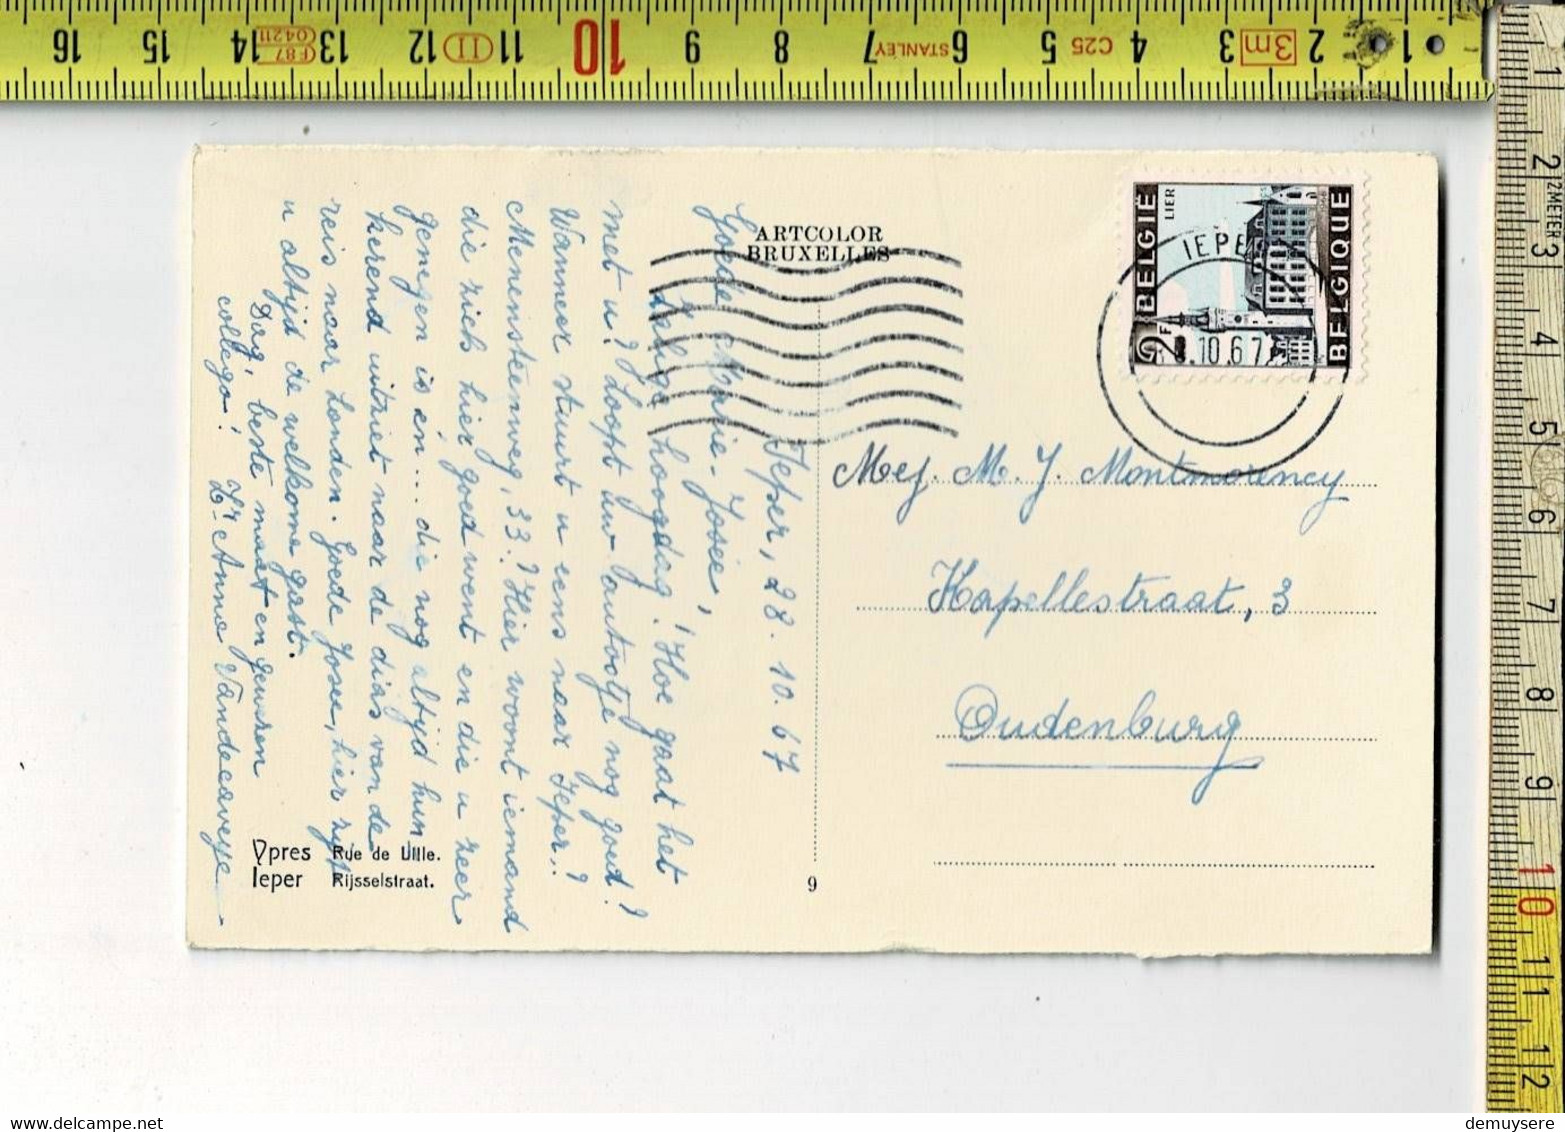 16 15 14 13 12 11 10 9 8 7 6 5 4 3 2 1
F 87 04.211
II
STANLEY
C25
3m
1
2
2METER
3
4
5
6
7
8
9
10
11
12
ARTCOLOR
BRUXELLES
BELGIE
LIER
BELGIQUE
2F
IEPER
10.67
Ieper, 28.10.67
Goede Marie-Josée,
Zalige hoogdag! Hoe gaat het
met u? Loopt uw autootje nog goed?
Wanneer stuurt u eens naar Ieper..?
Menensteenweg, 33? Hier woont iemand
die zich hier goed went en die u zeer
genegen is en... die nog altijd hun
kerend uitziet naar de dias van de
reis naar Londen. Goede Josee, hier zijt
u altijd de welkome gast.
Dag, beste maat en gewezen
collega! Zr Anna Vandecaveye
Mej. M. J. Montmorency
Kapellestraat, 3
Oudenburg
Ypres Rue de Lille.
Ieper Rijsselstraat.
9
demuysere